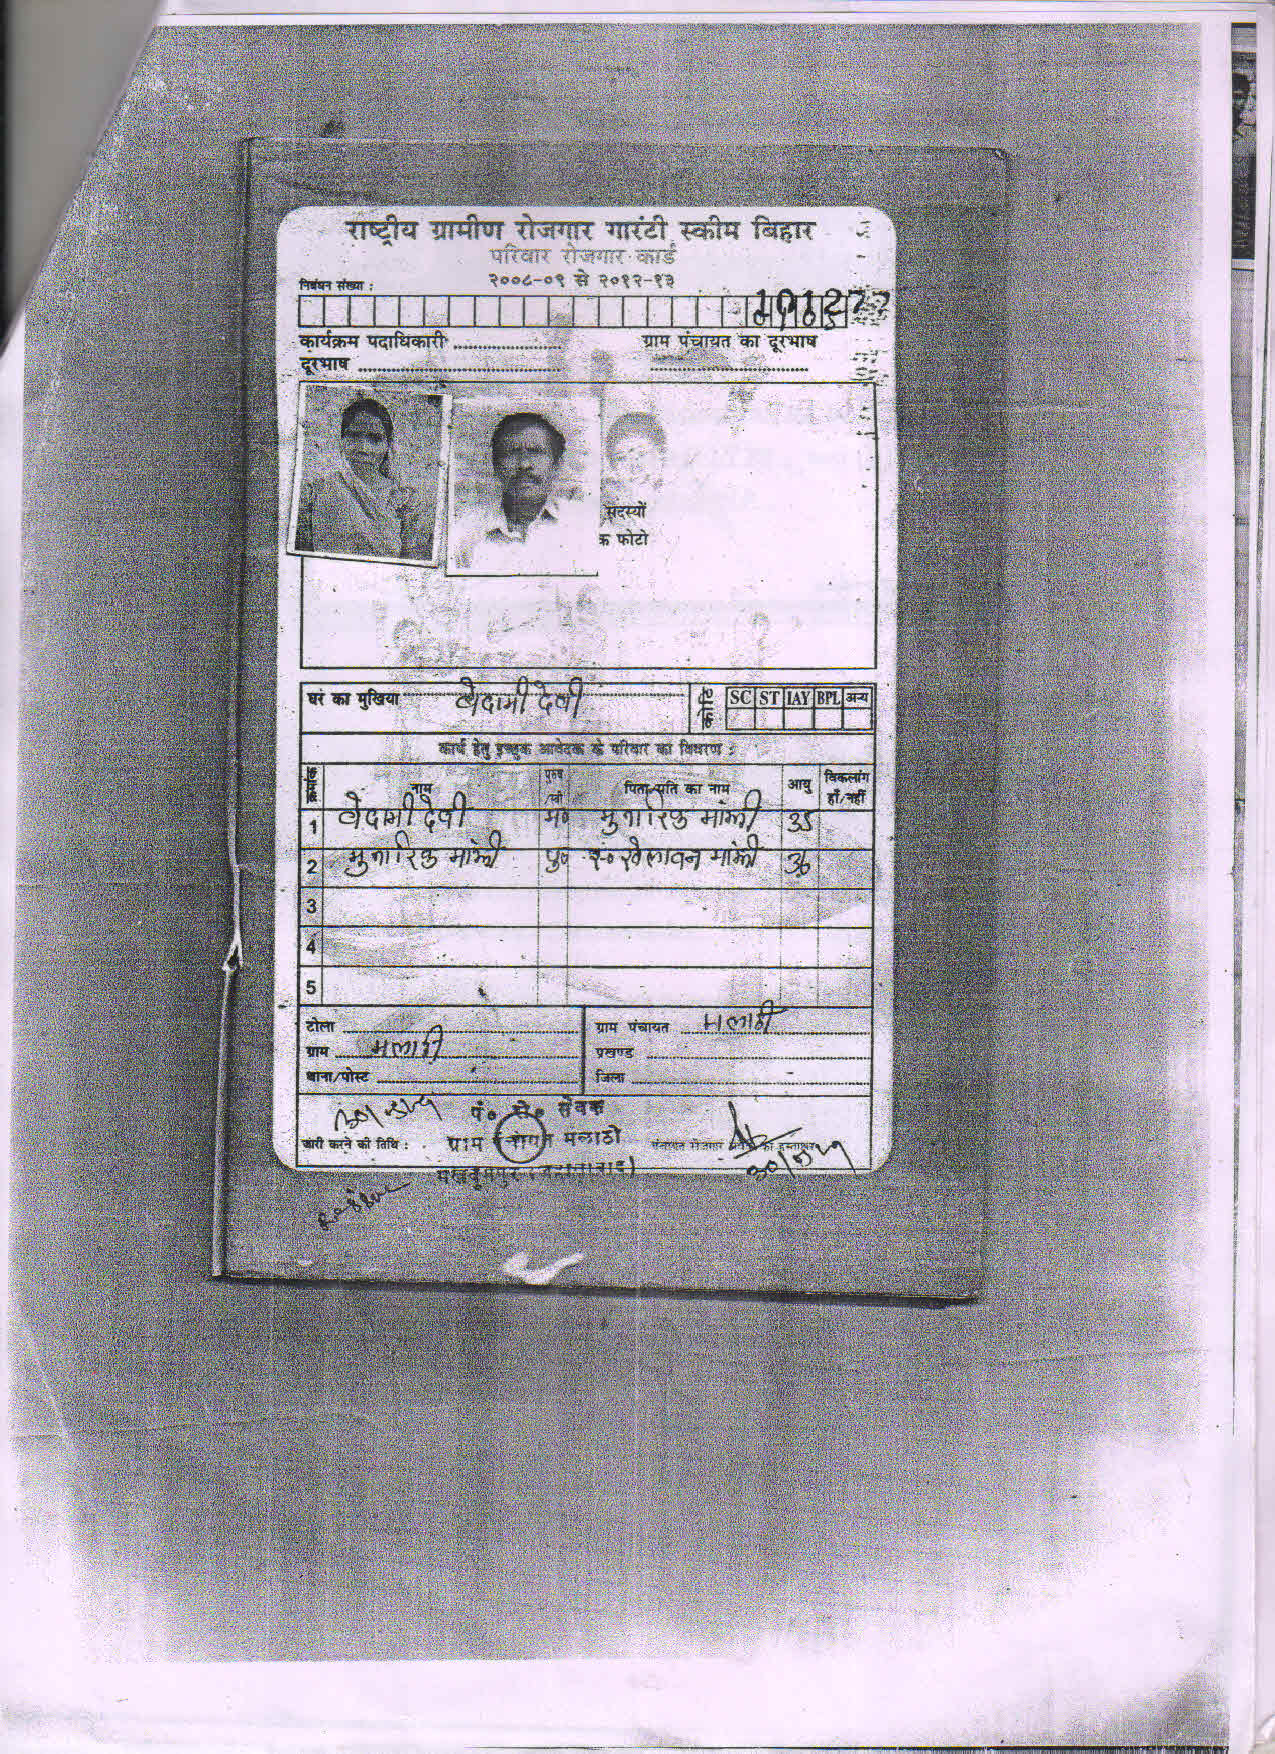 राष्ट्रीय ग्रामीण रोजगार गारंटी स्कीम बिहार
परिवार रोजगार कार्ड
२००८-०९ से २०१२-१३
निबंधन संख्या :
कार्यक्रम पदाधिकारी
ग्राम पंचायत का दूरभाष
दूरभाष
सदस्यों
क फोटो
घर का मुखिया वेदामी देवी
कोटि SC ST IAY BPL अन्य
कार्य हेतु इच्छुक आवेदक के परिवार का विवरण :
क्रमांक नाम पुरुष/स्त्री पिता/पति का नाम आयु विकलांग हाँ/नहीं
1 वेदामी देवी म० मुनारिक मांझी 35
2 मुनारिक मांझी पु० स्व० खेलावन मांझी 36
3
4
5
टोला
ग्राम पंचायत मलाठी
ग्राम मलाठी
प्रखण्ड
थाना/पोस्ट
जिला
पं० से० सेवक
जारी करने की तिथि :
ग्राम पंचायत मलाठी